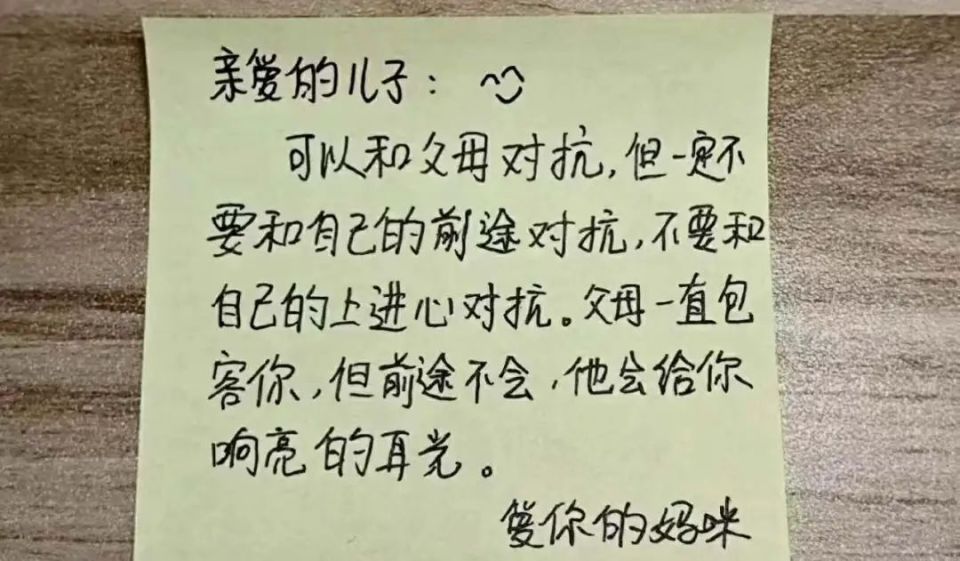 亲爱的儿子:
可以和父母对抗,但一定不
要和自己的前途对抗,不要和
自己的上进心对抗。父母一直包
容你,但前途不会,他会给你
响亮的耳光。
爱你的妈咪